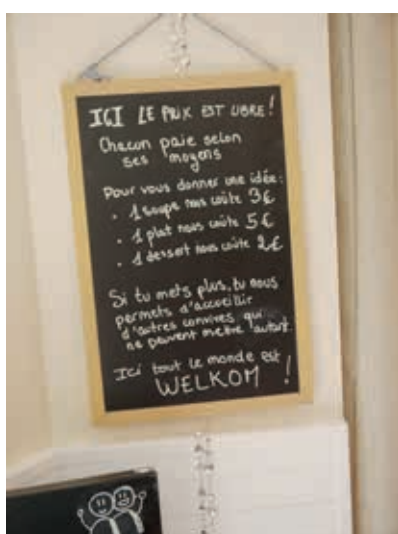 ICI LE PRIX EST LIBRE !
Chacun paie selon
ses moyens
Pour vous donner une idée :
• 1 soupe nous coûte 3€
• 1 plat nous coûte 5€
• 1 dessert nous coûte 2€
Si tu mets plus, tu nous
permets d'accueillir
d'autres convives qui
ne peuvent mettre autant.
Ici tout le monde est
WELKOM !